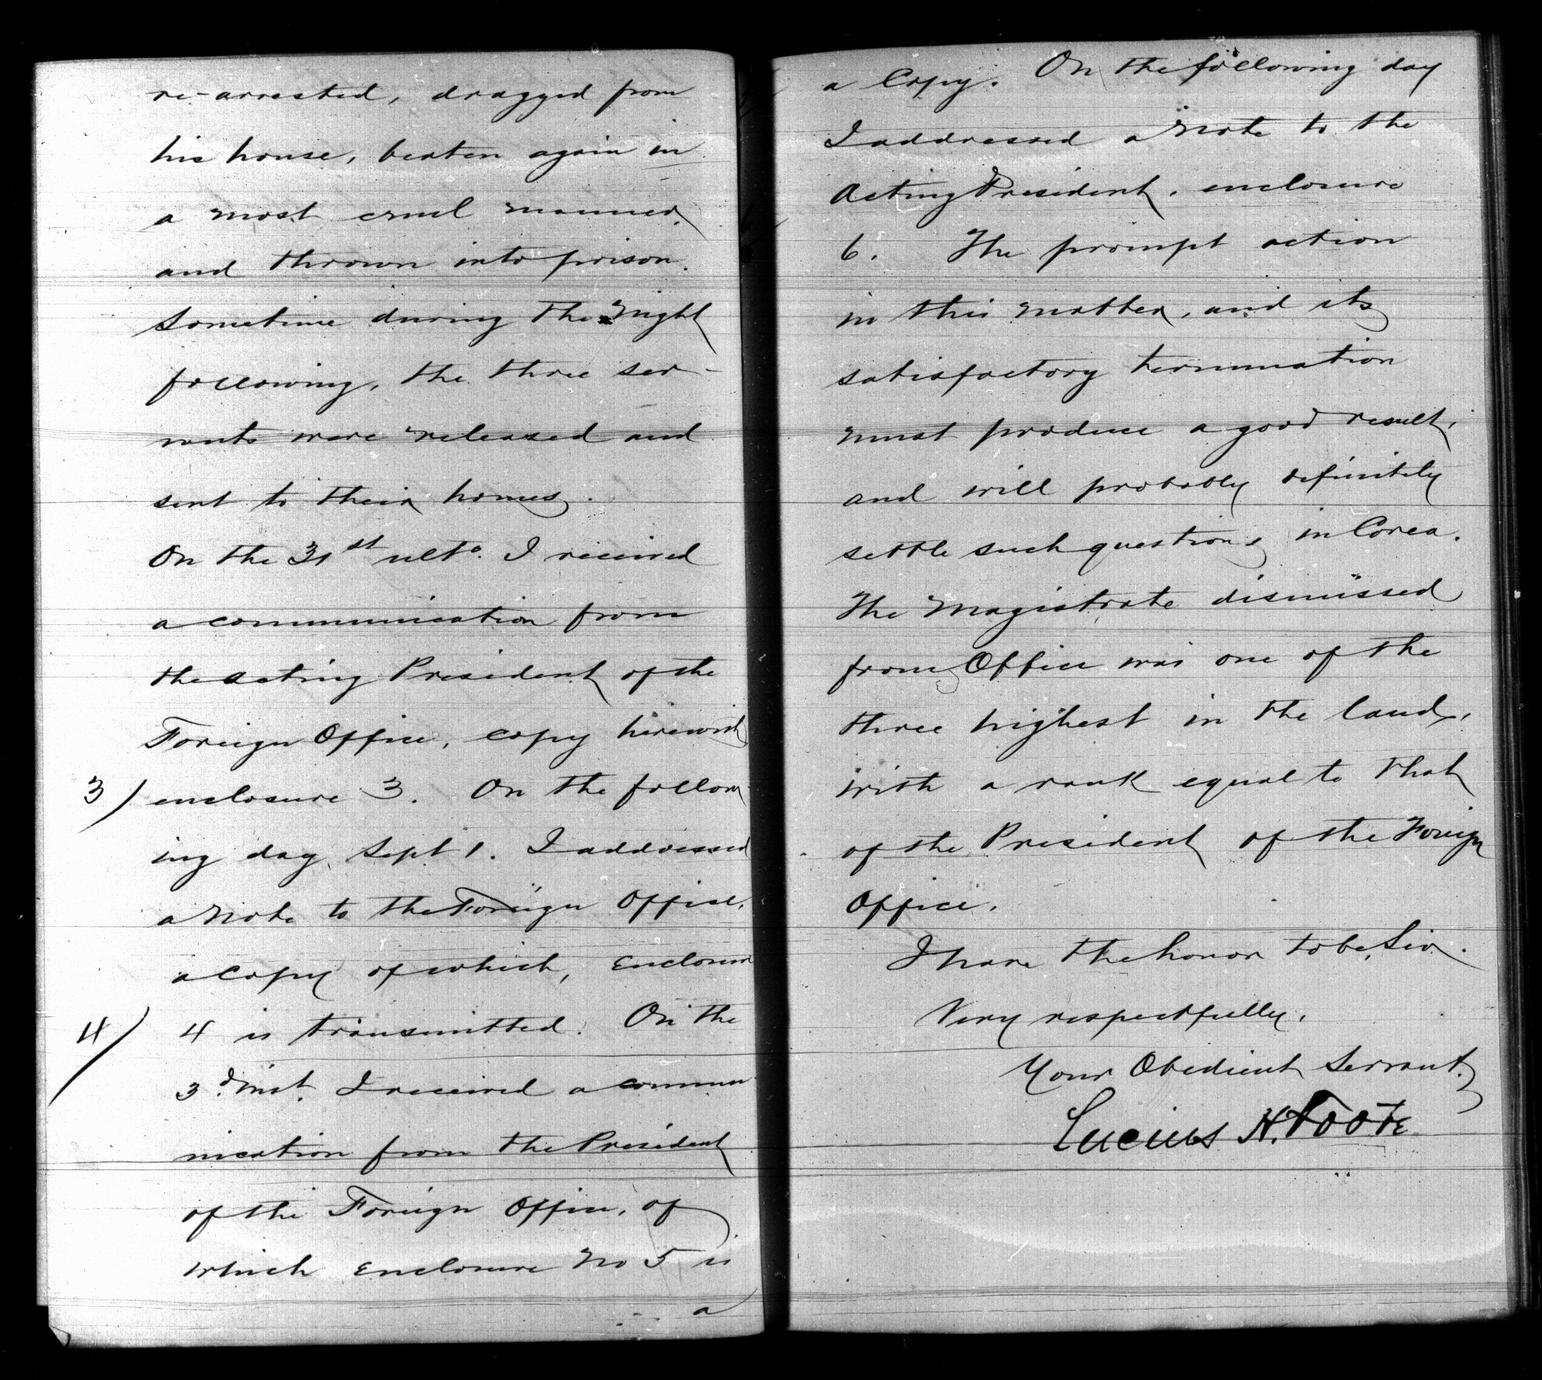 re-arrested, dragged from
his house, beaten again in
a most cruel manner,
and thrown into prison.
Sometime during the night
following, the three ser-
vants were released and
sent to their homes.
On the 31st ulto. I received
a communication from
the acting President of the
Foreign Office, copy herewith
3/ enclosure 3. On the follow-
ing day, Sept 1. I addressed
a note to the Foreign Office,
a copy of which, Enclosure
4/ 4 is transmitted. On the
3d. inst. I received a commu-
nication from the President
of the Foreign Office, of
which Enclosure No 5 is
a
a Copy. On the following day
I addressed a note to the
Acting President, enclosure
6. The prompt action
in this matter, and its
satisfactory termination
must produce a good result,
and will probably definitely
settle such questions in Corea.
The Magistrate dismissed
from Office was one of the
three highest in the land,
with a rank equal to that
of the President of the Foreign
Office.
I have the honor to be, Sir.
Very respectfully,
Your Obedient Servant,
Lucius H. Foote